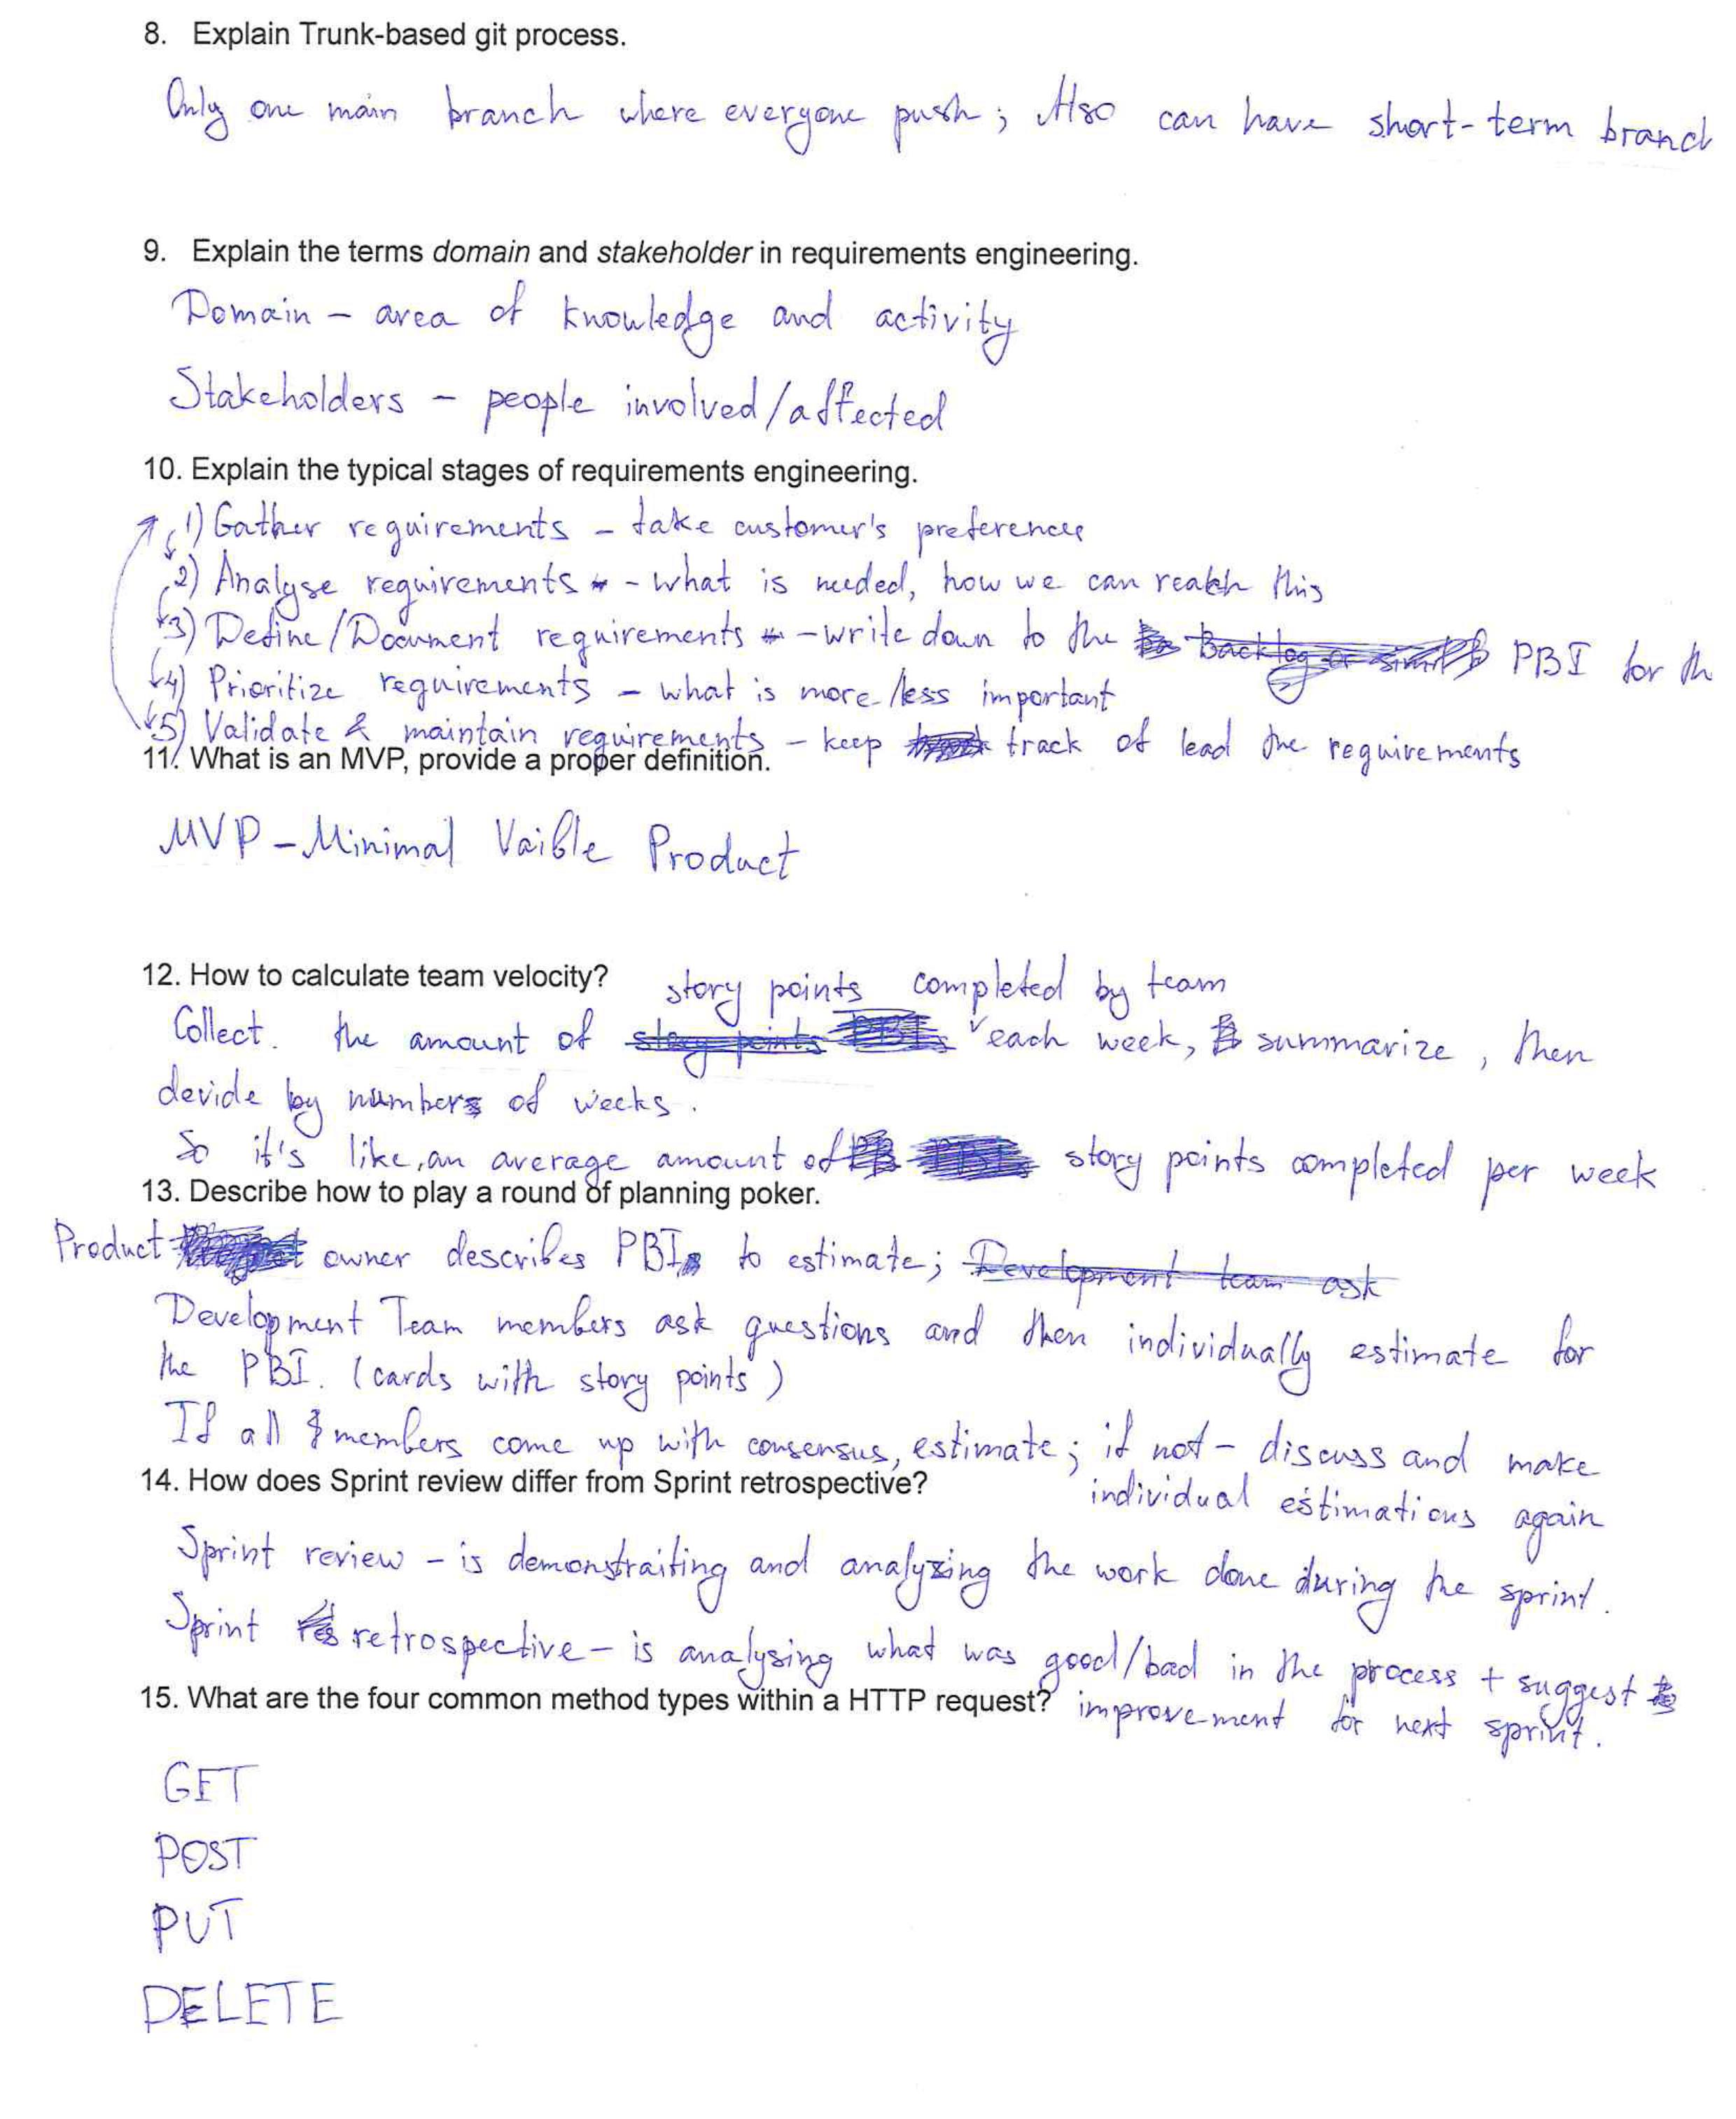 8. Explain Trunk-based git process.
Only one main branch where everyone push; Also can have short-term branch
9. Explain the terms domain and stakeholder in requirements engineering.
Domain - area of knowledge and activity
Stakeholders - people involved/affected
10. Explain the typical stages of requirements engineering.
1) Gather requirements - take customer's preferences
2) Analyse requirements - what is needed, how we can reach this
3) Define/Document requirements - write down to the PBI for th
4) Prioritize requirements - what is more/less important
5) Validate & maintain requirements - keep track of lead the requirements
11. What is an MVP, provide a proper definition.
MVP - Minimal Vaible Product
12. How to calculate team velocity?
story points completed by team
Collect. the amount of story points PBIs each week, summarize, then
devide by numbers of weeks.
So it's like, an average amount of story points completed per week
13. Describe how to play a round of planning poker.
Product owner describes PBI to estimate; Development team ask
Development Team members ask questions and then individually estimate for
the PBI. (cards with story points)
If all members come up with consensus, estimate; if not - discuss and make
individual estimations again
14. How does Sprint review differ from Sprint retrospective?
Sprint review - is demonstraiting and analyzing the work done during the sprint.
Sprint retrospective - is analysing what was good/bad in the process + suggest
improvement for next sprint.
15. What are the four common method types within a HTTP request?
GET
POST
PUT
DELETE